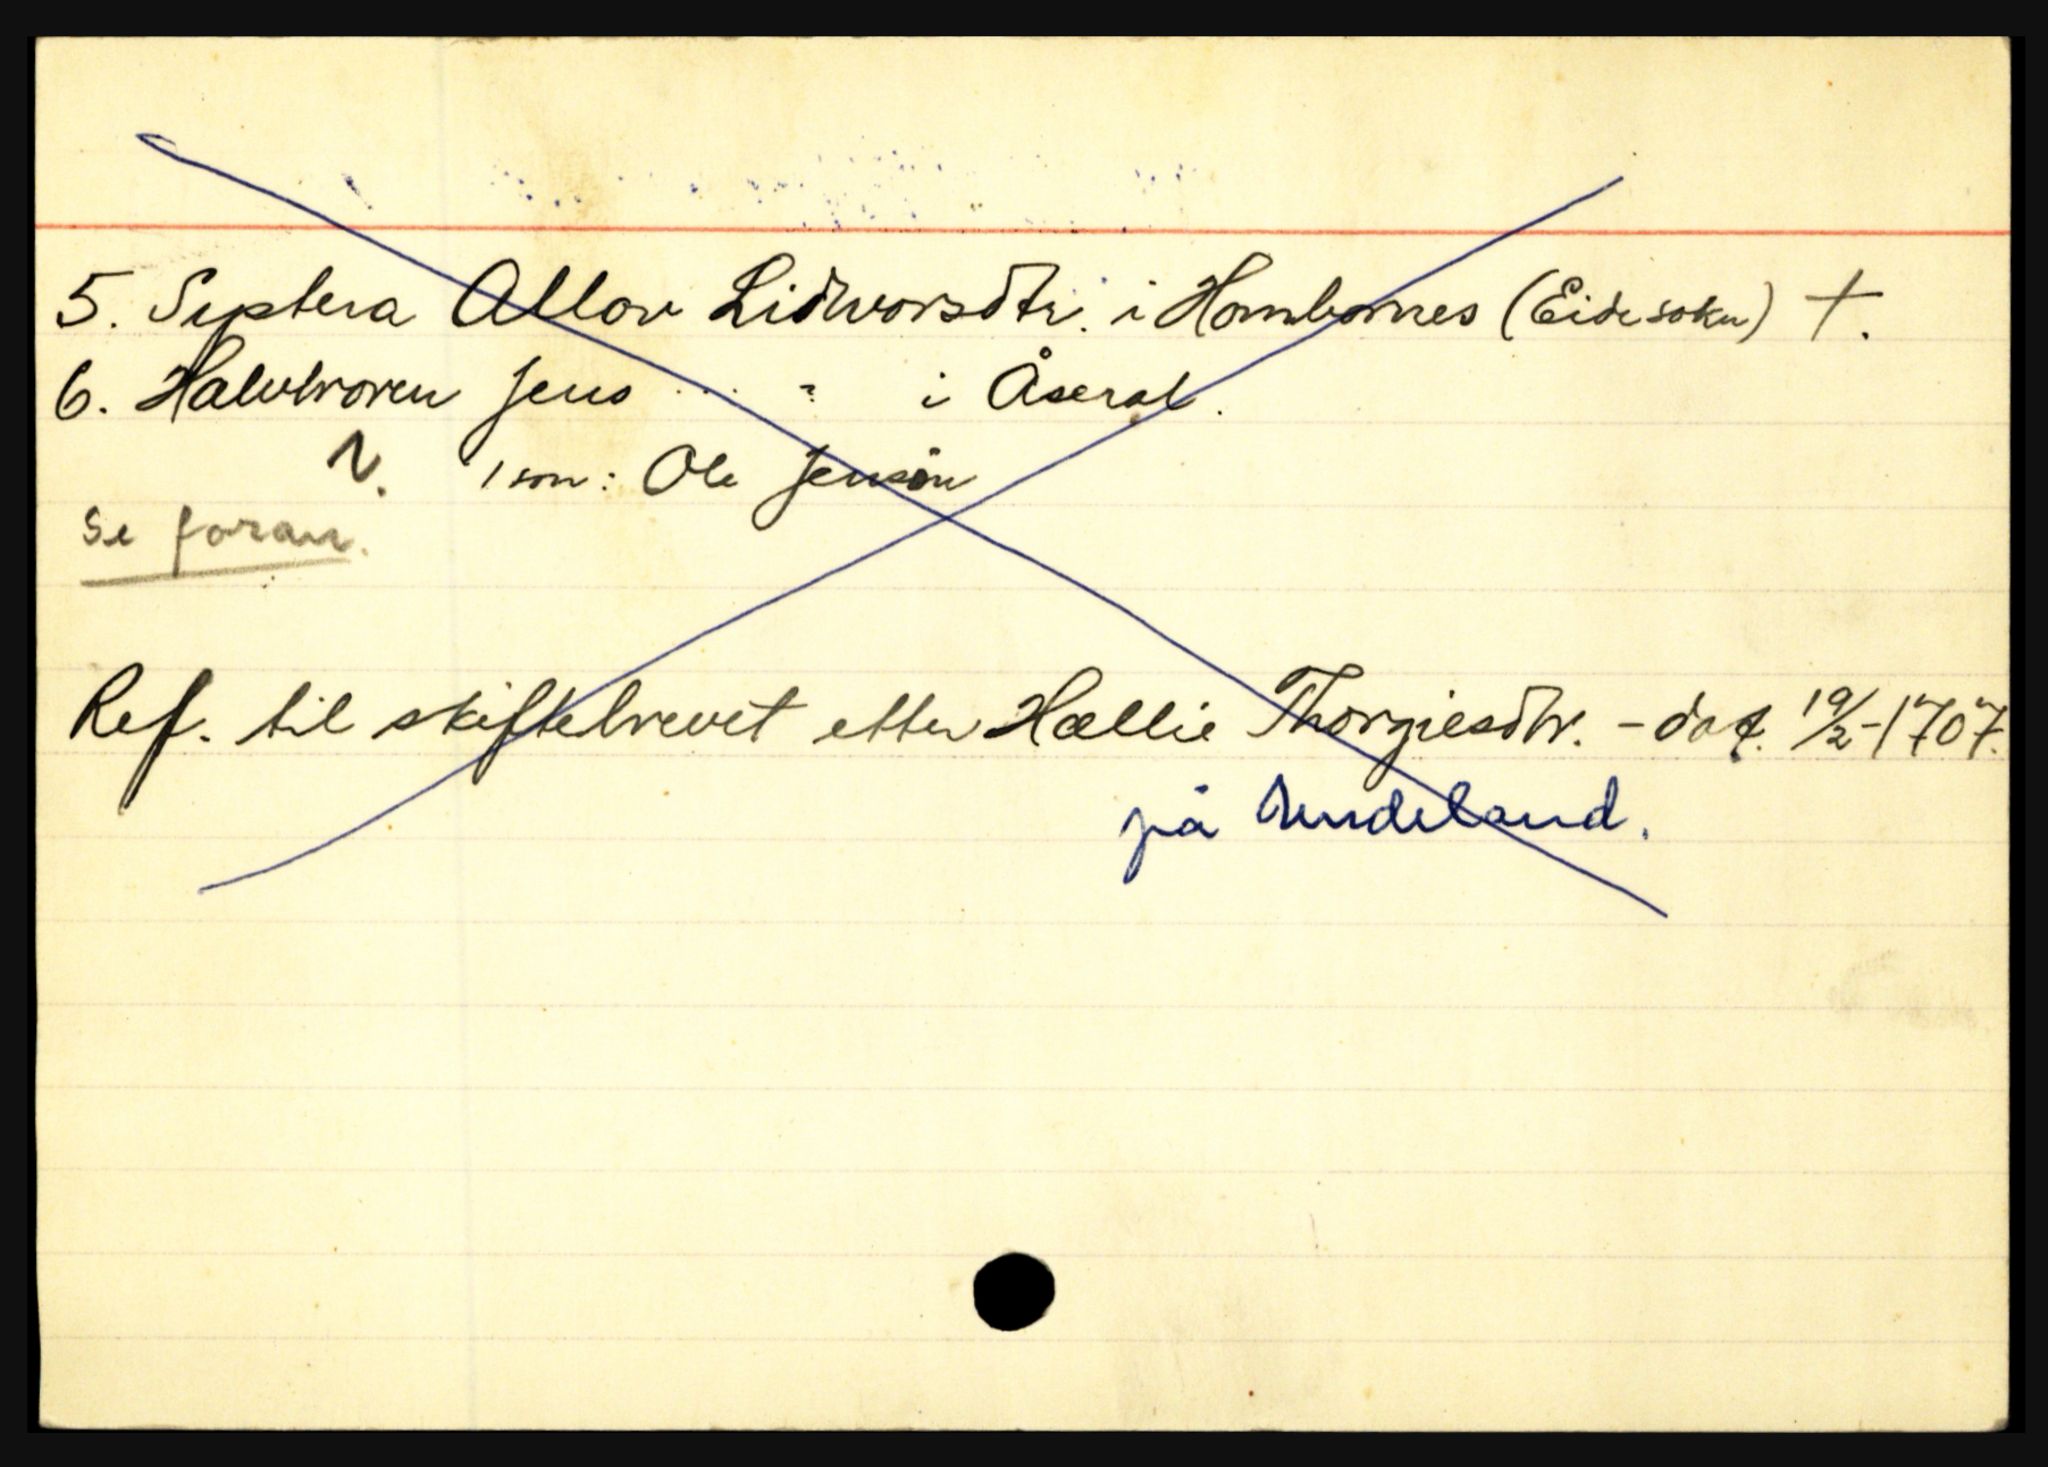 5. Systera Allov Lidvorsdtr. i Hombornes (Eide sokn) †.
6. Halvbroren Jens ... ? i Åseral.
N. 1 son: Ole Jensøn
Se foran.
Ref. til skiftebrevet etter Hællie Thorgiesdtr. - dat. 19/2-1707.
på